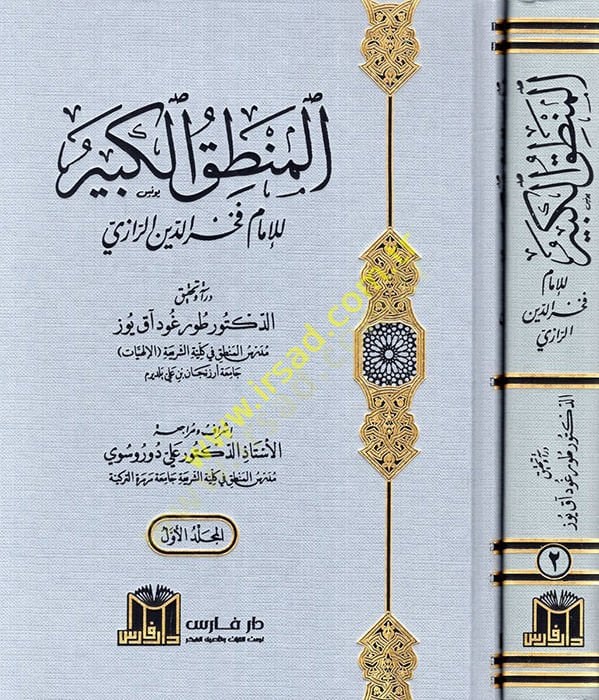 المنطق الكبير
يونس
للإمام فخر الدين الرازي
دراسة وتحقيق
الدكتور طورغود آق يوز
مدرس المنطق في كلية الشريعة (الإلهيات)
جامعة أرزنجان بن علي يلديرم
إشراف ومراجعة
الأستاذ الدكتور علي دوروسوي
مدرس المنطق في كلية الشريعة جامعة مرمرة التركية
المجلد الأول
دار فارس
دار فارس
www.irsad.com.tr
المنطق الكبير
يونس
للإمام
فخر الدين
الرازي
دراسة وتحقيق
الدكتور طورغود آق يوز
٢
دار فارس